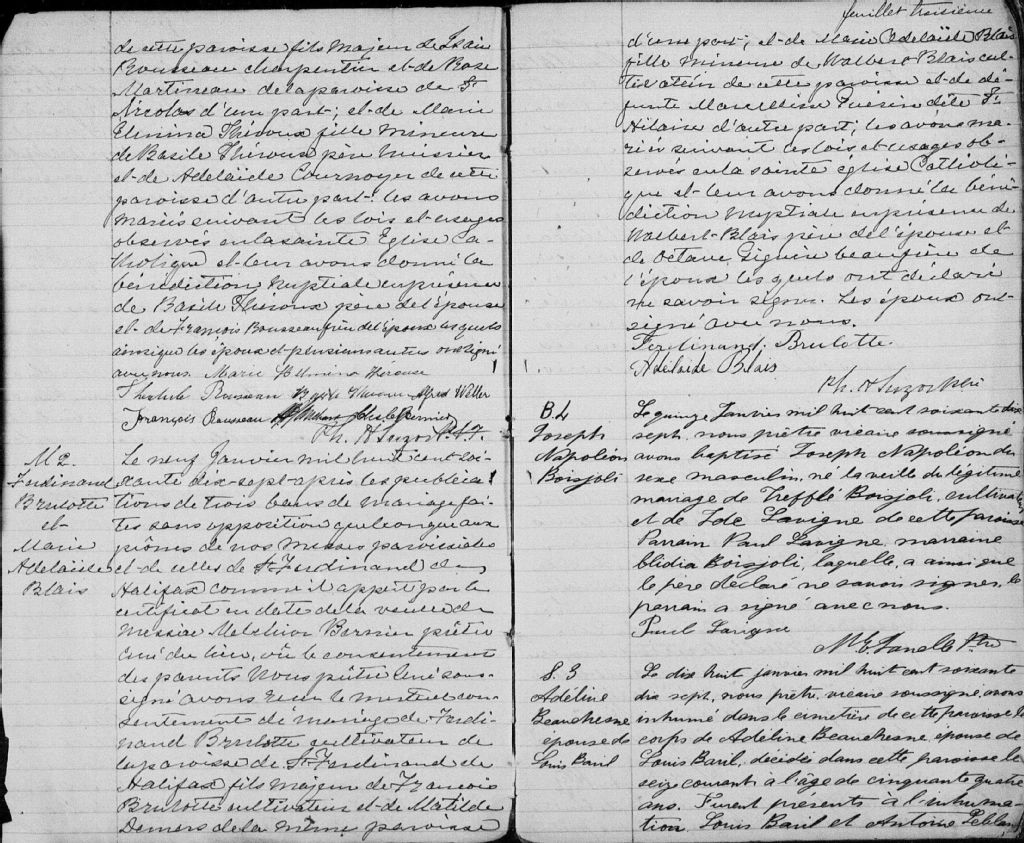 de cette paroisse fils majeur de
Rousseau charpentier et de Rose
Martineau de la paroisse de St
Nicolas d'une part; et de Marie
Elmina Théroux fille mineure
de Basile Théroux père menuisier
et de Adelaïde Cournoyer de cette
paroisse d'autre part les avons
mariés suivant les lois et usages
observés en la sainte Eglise Ca-
tholique et leur avons donné la
bénédiction nuptiale en présence
de Basile Théroux père de l'épouse
et de François Rousseau frère de l'époux lesquels
ainsi que les époux et plusieurs autres ont signé
avec nous. Marie
Rousseau Alfred
François Rousseau
Ph. H Suzor Ptr
M 2.
Ferdinand
Brulotte
et
Marie
Adelaïde
Blais
Le neuf Janvier mil huit cent soi-
xante dix-sept après les publica
tions de trois bans de mariage fai-
tes sans opposition quelconque aux
prônes de nos messes paroissiales
et de celles de St Ferdinand de
Halifax comme il appert par le
certificat en date de la veille de
Messire Melchior Bernier prêtre
curé du lieu, vû le consentement
des parents Nous prêtre curé sous-
signé avons reçu le mutuel con-
sentement de mariage de Ferdi-
nand Brulotte cultivateur de
la paroisse de St Ferdinand de
Halifax fils majeur de François
Brulotte cultivateur et de Matilde
Demers de la même paroisse
feuillet troisième
d'une part; et de Marie Adelaïde Blais
fille mineure de Walbert Blais cul-
tivateur de cette paroisse et de dé-
funte Marcelline Guérin dite St
Hilaire d'autre part; les avons ma-
riés suivant les lois et usages ob-
servés en la sainte église Catholi-
que et leur avons donné la béné-
diction nuptiale en présence de
Walbert Blais père de l'épouse et
de Octave Giguère beaufrère de
l'époux lesquels ont déclaré
ne savoir signer. Les époux ont
signé avec nous.
Ferdinand Brulotte
Adelaide Blais
Ph. H Suzor Ptr
B. 4
Joseph
Napoléon
Boisjoli
Le quinze Janvier mil huit cent soixante dix
sept, nous prêtre vicaire soussigné
avons baptisé Joseph Napoléon du
sexe masculin, né la veille du légitime
mariage de Trefflé Boisjoli, cultivateur
et de Zoé Lavigne de cette paroisse
Parrain Paul Lavigne, marraine
Elidia Boisjoli, laquelle, a ainsi que
le père déclaré ne savoir signer, le
parrain a signé avec nous.
Paul Lavigne
Ptre
S. 3
Adéline
Beauchesne
épouse de
Louis Baril
Le dix huit janvier mil huit cent soixante
dix sept, nous prêtre, vicaire soussigné, avons
inhumé dans le cimetière de cette paroisse le
corps de Adéline Beauchesne, épouse de
Louis Baril, décédée dans cette paroisse le
seize courant à l'âge de cinquante quatre
ans. Furent présents à l'inhuma-
tion, Louis Baril et Antoine Leblanc